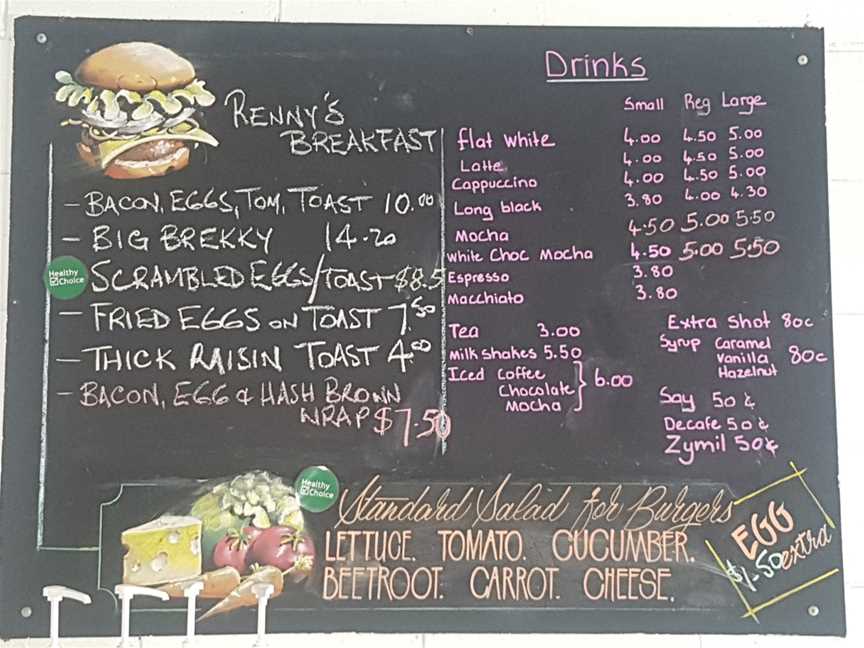 RENNY'S
BREAKFAST
- BACON, EGGS, TOM, TOAST 10.00
- BIG BREKKY 14.20
Healthy Choice
SCRAMBLED EGGS/TOAST $8.5
- FRIED EGGS ON TOAST 7.50
- THICK RAISIN TOAST 4.00
- BACON, EGG & HASH BROWN
WRAP $7.50
Drinks
Small Reg Large
flat white 4.00 4.50 5.00
Latte 4.00 4.50 5.00
Cappuccino 4.00 4.50 5.00
Long black 3.80 4.00 4.30
Mocha 4.50 5.00 5.50
White Choc Mocha 4.50 5.00 5.50
Espresso 3.80
Macchiato 3.80
Tea 3.00
Milkshakes 5.50
Iced Coffee
Chocolate 6.00
Mocha
Extra Shot 80c
Syrup Caramel
Vanilla 80c
Hazelnut
Soy 50¢
Decafe 50¢
Zymil 50¢
Healthy Choice
Standard Salad for Burgers
LETTUCE. TOMATO. CUCUMBER.
BEETROOT. CARROT. CHEESE.
EGG
$1.50 extra